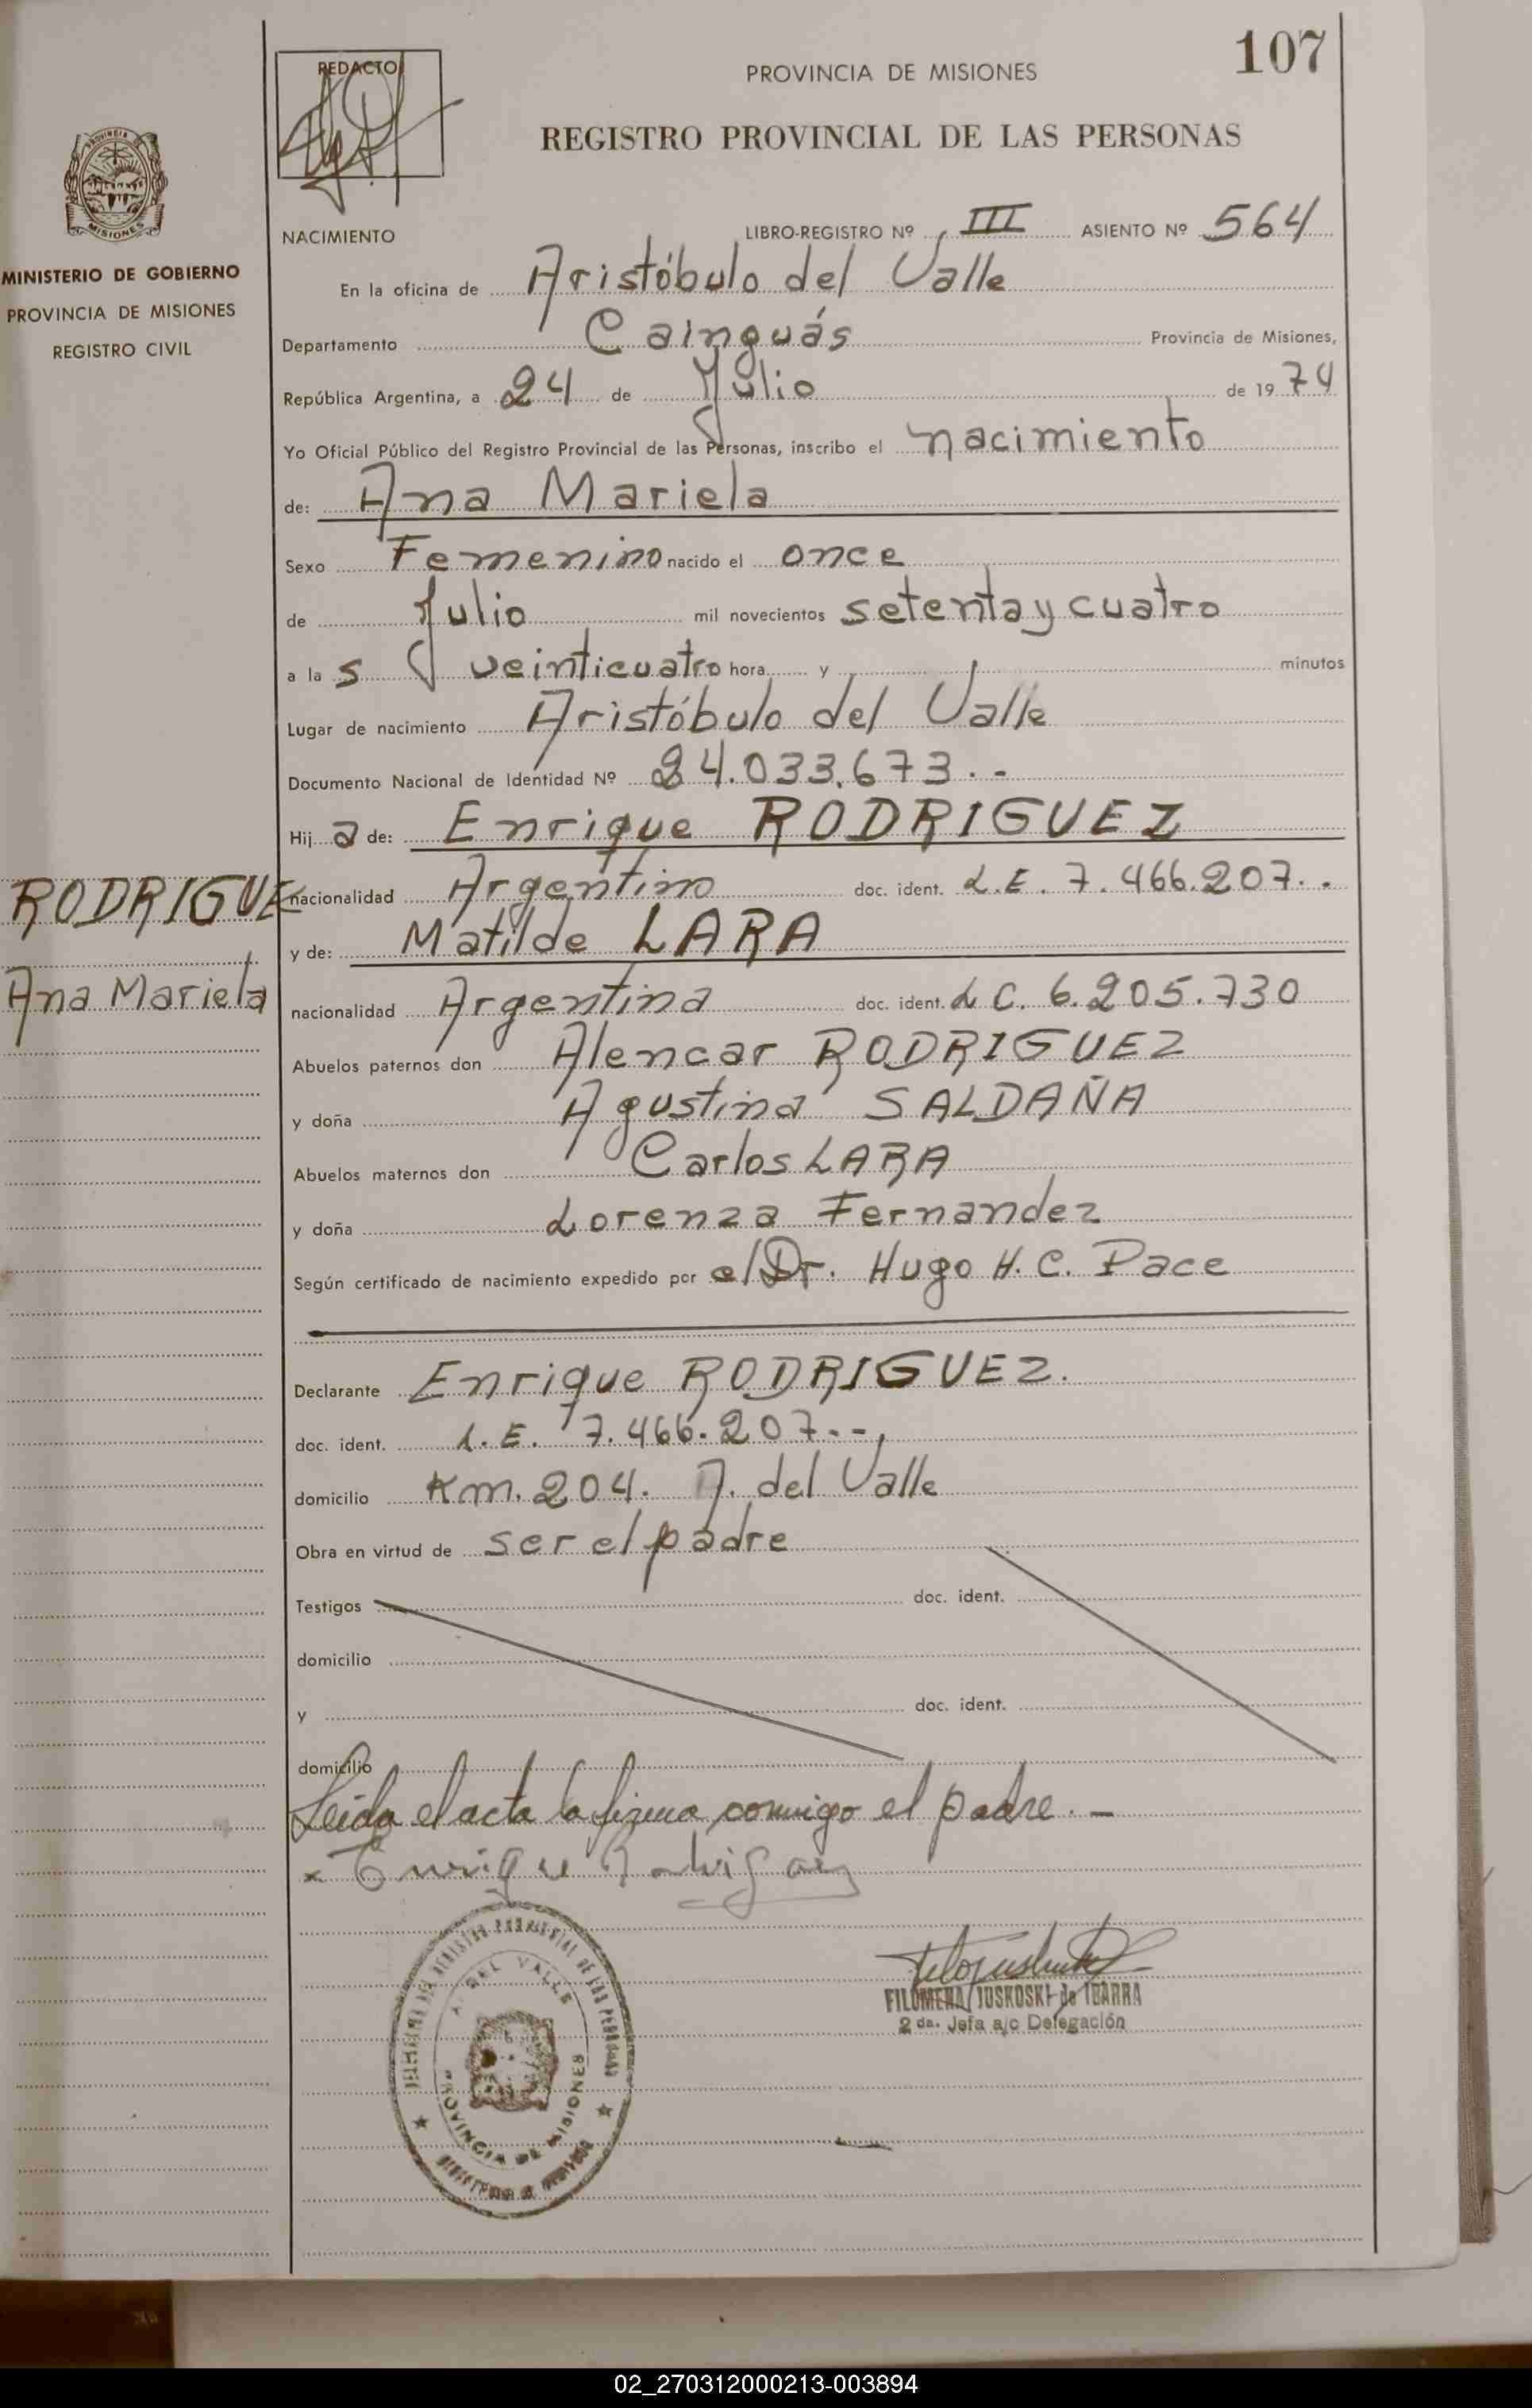 107
REDACTO
PROVINCIA DE MISIONES
REGISTRO PROVINCIAL DE LAS PERSONAS
PROVINCIA
MISIONES
MINISTERIO DE GOBIERNO
PROVINCIA DE MISIONES
REGISTRO CIVIL
NACIMIENTO LIBRO-REGISTRO Nº III ASIENTO Nº 564
En la oficina de Aristóbulo del Valle
Departamento Cainguás Provincia de Misiones,
República Argentina, a 24 de Julio de 1974
Yo Oficial Público del Registro Provincial de las Personas, inscribo el nacimiento
de: Ana Mariela
Sexo Femenino nacido el once
de Julio mil novecientos setenta y cuatro
a las veinticuatro hora y minutos
Lugar de nacimiento Aristóbulo del Valle
Documento Nacional de Identidad Nº 24.033.673.-
Hija de: Enrique RODRIGUEZ
RODRIGUE
nacionalidad Argentino doc. ident. L.E. 7.466.207..
y de: Matilde LARA
Ana Mariela
nacionalidad Argentina doc. ident. L C. 6.205.730
Abuelos paternos don Alencar RODRIGUEZ
y doña Agustina SALDAÑA
Abuelos maternos don Carlos LARA
y doña Lorenza Fernandez
Según certificado de nacimiento expedido por el Dr. Hugo H. C. Pace
Declarante Enrique RODRIGUEZ.
doc. ident. L.E. 7.466.207.-
domicilio Km. 204. A. del Valle
Obra en virtud de ser el padre
Testigos doc. ident.
domicilio
y doc. ident.
domicilio
Leida el acta la firma conmigo el padre. -
x Enrique Rodrigez
A. DEL VALLE
PROVINCIA DE MISIONES
REGISTRO PROVINCIAL DE LAS PERSONAS
FILOMENA JUSKOSKI de IBARRA
2 da. Jefa a/c Delegación
02_270312000213-003894